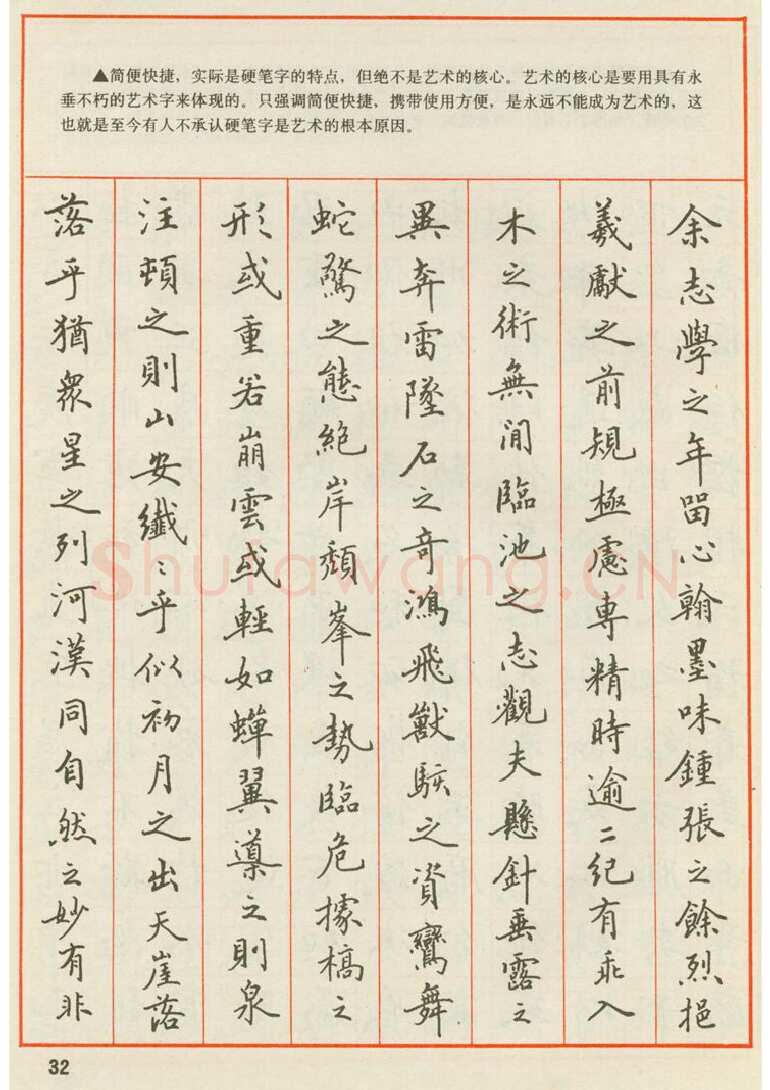 ▲简便快捷，实际是硬笔字的特点，但绝不是艺术的核心。艺术的核心是要用具有永
垂不朽的艺术字来体现的。只强调简便快捷，携带使用方便，是永远不能成为艺术的，这
也就是至今有人不承认硬笔字是艺术的根本原因。
余志學之年畱心翰墨味鍾張之餘烈挹
羲獻之前規極慮專精時逾二紀有乖入
木之術無間臨池之志觀夫懸針垂露之
異奔雷墜石之奇鴻飛獸駭之資鸞舞
蛇驚之態絕岸頹峯之勢臨危據槁之
形或重若崩雲或輕如蟬翼導之則泉
注頓之則山安纖〻乎似初月之出天崖落
落乎猶眾星之列河漢同自然之妙有非
Shufawang.CN
32